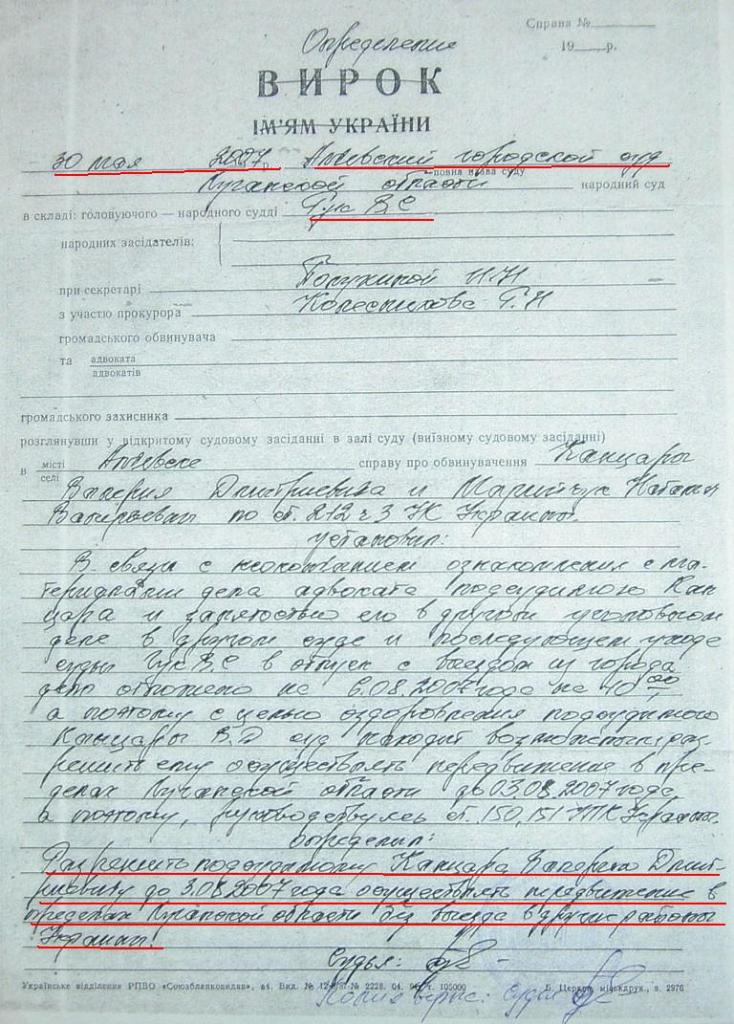 Справа №
19 р.
Определение
ВИРОК
ІМ'ЯМ УКРАЇНИ
30 мая 2007 р. Алчевский городской суд
повна назва суду
Луганской области народний суд
в складі: головуючого — народного судді Гук В С
народних засідателів:
при секретарі Полухиной И.Н
з участю прокурора Колесникова Г.Н
громадського обвинувача
та адвоката
адвокатів
громадського захисника
розглянувши у відкритому судовому засіданні в залі суду (виїзному судовому засіданні)
в місті Алчевске справу про обвинувачення Канцары
селі
Валерия Дмитриевича и Натальи
Валерьевны по ст. 212 ч 3 УК Украины.
установил:
В связи с неокончанием ознакомления с ма-
териалами дела адвоката подсудимого Кан-
цара и занятостью его в другом уголовном
деле в другом суде и последующем уходе
судьи Гук В С в отпуск с выездом из города
дело отложено на 6.08.2007 года на 10 00
а поэтому с целью оздоровления подсудимого
Канцары В.Д суд находит возможным раз-
решить ему осуществлять передвижение в пре-
делах Луганской области до 03.08.2007 года
а поэтому, руководствуясь ст. 150, 151 УПК Украины.
определил:
Разрешить подсудимому Канцара Валерию Дмит-
риевичу до 3.08.2007 года осуществлять передвижение в
пределах Луганской области без выезда в другие районы
Украины.
Судья:
Українське відділення РПВО «Союзбланковидав», в4. Вид. № 2228. 04. 105000 Б. Церков, міськдрук., з. 2976
Копия верна: судья